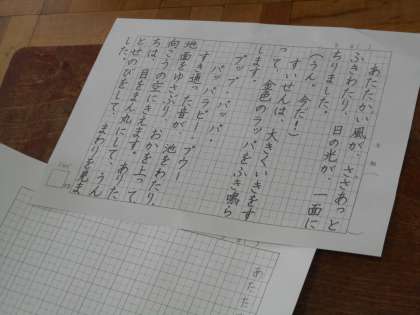 あたたかい風が、ささあっと
ふきわたり、日の光が、一面に
ちりました。
(うん。今だ!)
すいせんは、大きくいきをす
って、金色のラッパをふき鳴ら
します。
プップ・パッパ・
パッパラピー・プウー
すき通った音が、池をわたり、
地面をゆさぶり、おかを上って、
向こうの空にきえます。ありた
ちは、目をまん丸にして、うん
とせのびをして、まわりを見ま
した。
あたた